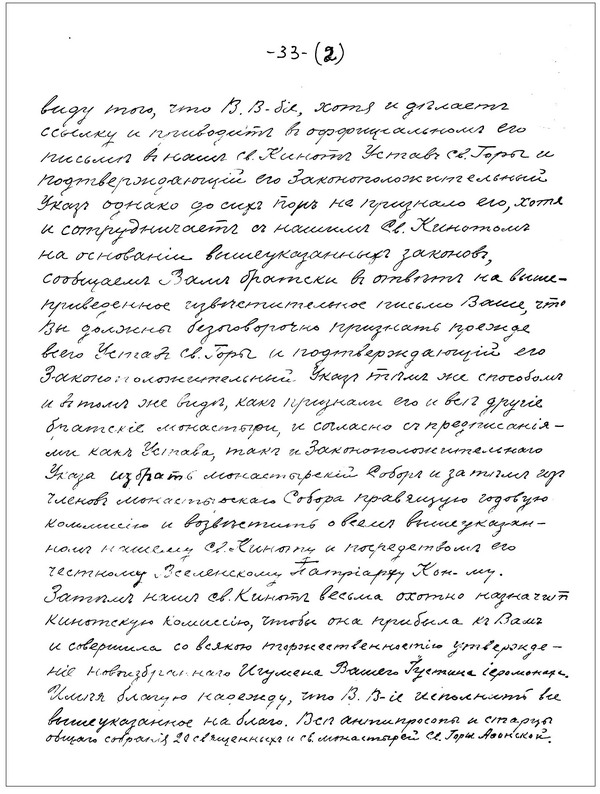 -33-(2)
виду того, что В. В-біе, хотя и дѣлаетъ
ссылку и приводитъ в оффиціальномъ его
письмѣ в нашъ св. Кинотъ Уставъ св. Горы и
подтверждающій его Законоположительный
Указъ однако до сихъ поръ не признало его, хотя
и сотрудничаетъ съ нашимъ Св. Кинотомъ
на основаніи вышеуказанныхъ законовъ,
сообщаемъ Вамъ братски в отвѣтъ на выше-
приведенное извѣстительное письмо Ваше, что
Вы должны безоговорочно признать прежде
всего Уставъ св. Горы и подтверждающій его
Законоположительный Указъ тѣмъ же способомъ
и в томъ же видѣ, какъ признали его и всѣ другіе
братскіе монастыри, и согласно съ предписанія-
ми какъ Устава, такъ и Законоположительнаго
Указа избрать монастырскій Соборъ и затѣмъ изъ
членовъ монастырскаго Собора правящую годовую
коммиссію и возвѣстить о всемъ вышеуказан-
номъ нашему св. Киноту и посредствомъ его
честному Вселенскому Патріарху Кон-му.
Затѣмъ нашъ св. Кинотъ весьма охотно назначитъ
кинотскую комиссію, чтобы она прибыла къ Вамъ
и совершила со всякою торжественностію утвержде-
ніе новоизбраннаго Игумена Вашего Іустина іеромонаха.
Имѣя благую надежду, что В. В-іе исполнитъ все
вышеуказанное на благо. Всѣ антипросопы и старцы
общаго собранія 20 священныхъ и св. монастырей Св. Горы Аѳонской.